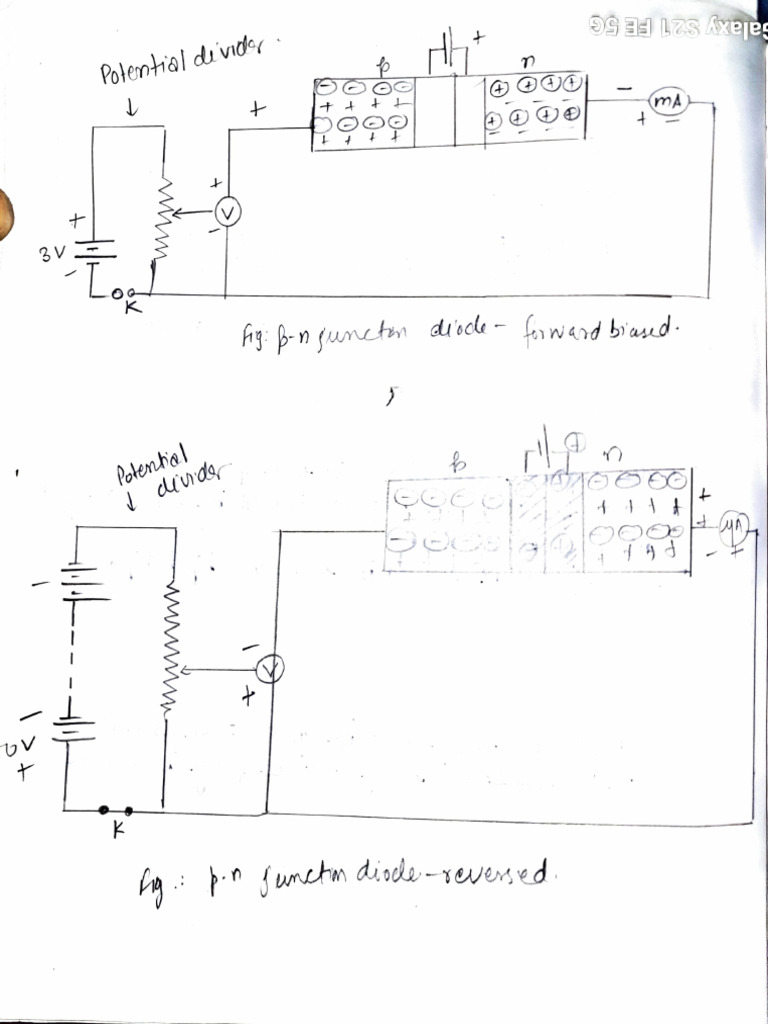 Galaxy S21 FE 5G
Potential divider.
p
+
n
+
-
mA
+
-
+
V
-
+
3V
-
K
Fig: p-n junction diode - forward biased.
Potential
divider
p
+
n
-
V
+
+
+
μA
-
+
-
-
0V
+
K
Fig.: p-n junction diode - reversed.